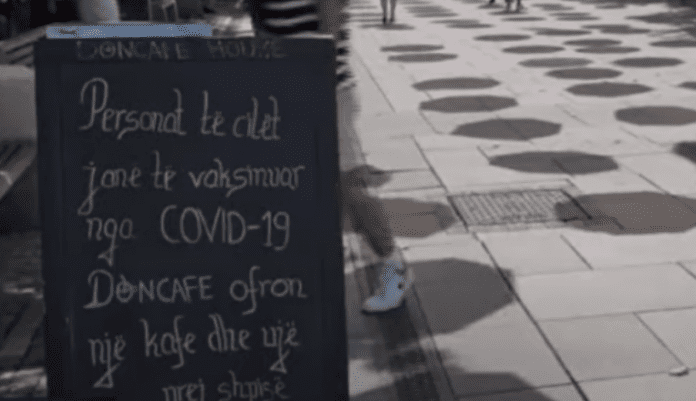 DONCAFE HOUSE
Personat të cilët
janë të vaksinuar
nga COVID-19
DONCAFE ofron
një kafe dhe ujë
prej shpisë